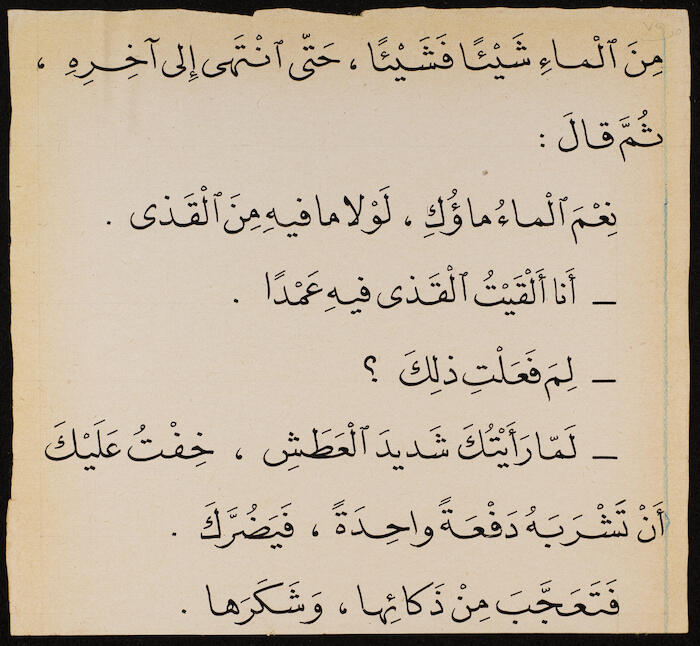 مِنَ ٱلْماءِ شَيْئًا فَشَيْئًا ، حَتّى ٱنْتَهى إِلى آخِرِهِ ،
ثُمَّ قالَ :
نِعْمَ ٱلْماءُ ماؤُكِ ، لَوْلا ما فيهِ مِنَ ٱلْقَذى .
ــ أَنا أَلْقَيْتُ ٱلْقَذى فيهِ عَمْدًا .
ــ لِمَ فَعَلْتِ ذلِكَ ؟
ــ لَمّا رَأَيْتُكَ شَديدَ ٱلْعَطَشِ ، خِفْتُ عَلَيْكَ
أَنْ تَشْرَبَهُ دَفْعَةً واحِدَةً ، فَيَضُرَّكَ .
فَتَعَجَّبَ مِنْ ذَكائِها ، وَشَكَرَها .